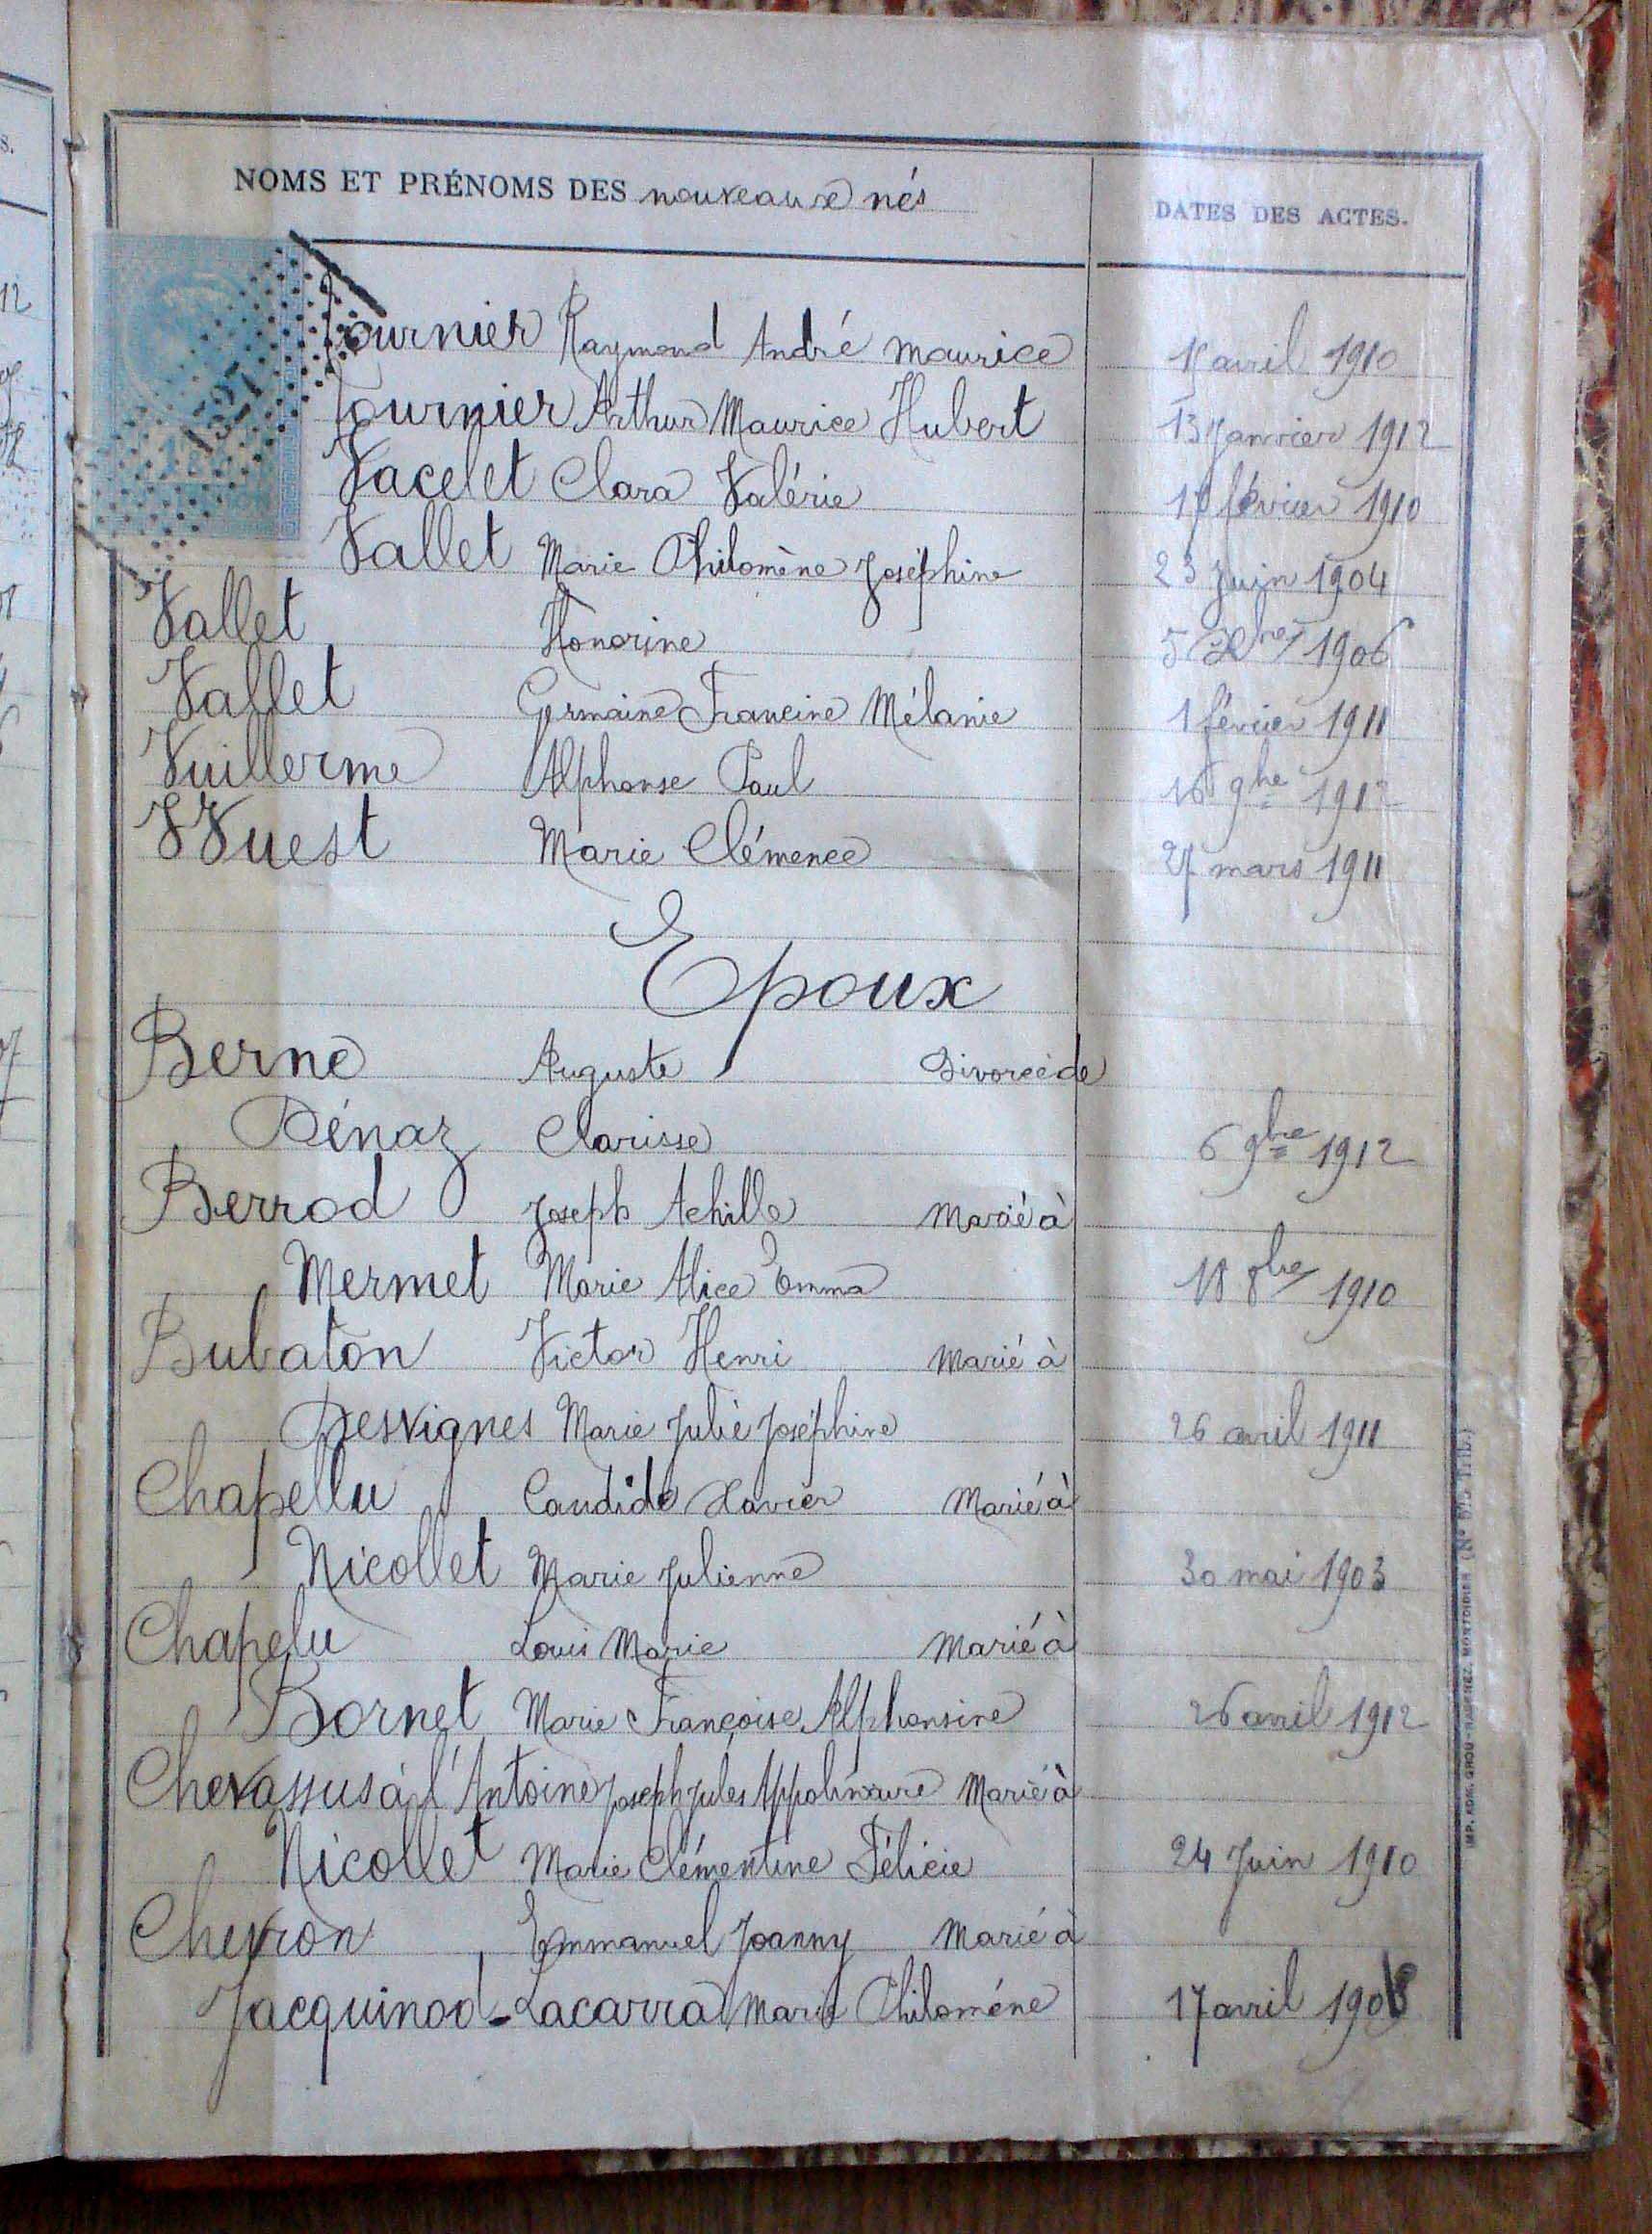 NOMS ET PRÉNOMS DES nouveaux nés DATES DES ACTES.
Tournier Raymond André Maurice avril 1910
Tournier Arthur Maurice Hubert 13 Janvier 1912
Vacelet Clara Valérie février 1910
Vallet Marie Philomène Joséphine 23 Juin 1904
Vallet Honorine 5 Xbre 1906
Vallet Germaine Francine Mélanie 1 février 1911
Vuillerme Alphonse Paul 16 9bre 1912
Wuest Marie Clémence 27 mars 1911
Epoux
Berne Auguste Divorcé de
Pénaz Clarisse 6 9bre 1912
Berrod Joseph Achille Marié à
Mermet Marie Alice Emma 18 8bre 1910
Bubaton Victor Henri Marié à
Desvignes Marie Julie Joséphine 26 avril 1911
Chapellu Candide Xavier Marié à
Nicollet Marie Julienne 30 mai 1903
Chapelu Louis Marie Marié à
Bornet Marie Françoise Alphonsine 26 avril 1912
Chevassus à l'Antoine Joseph Jules Appolinaire Marié à
Nicollet Marie Clémentine Félicie 24 Juin 1910
Cheyron Emmanuel Joanny Marié à
Jacquinod-Lacarra Marie Philoméne 17 avril